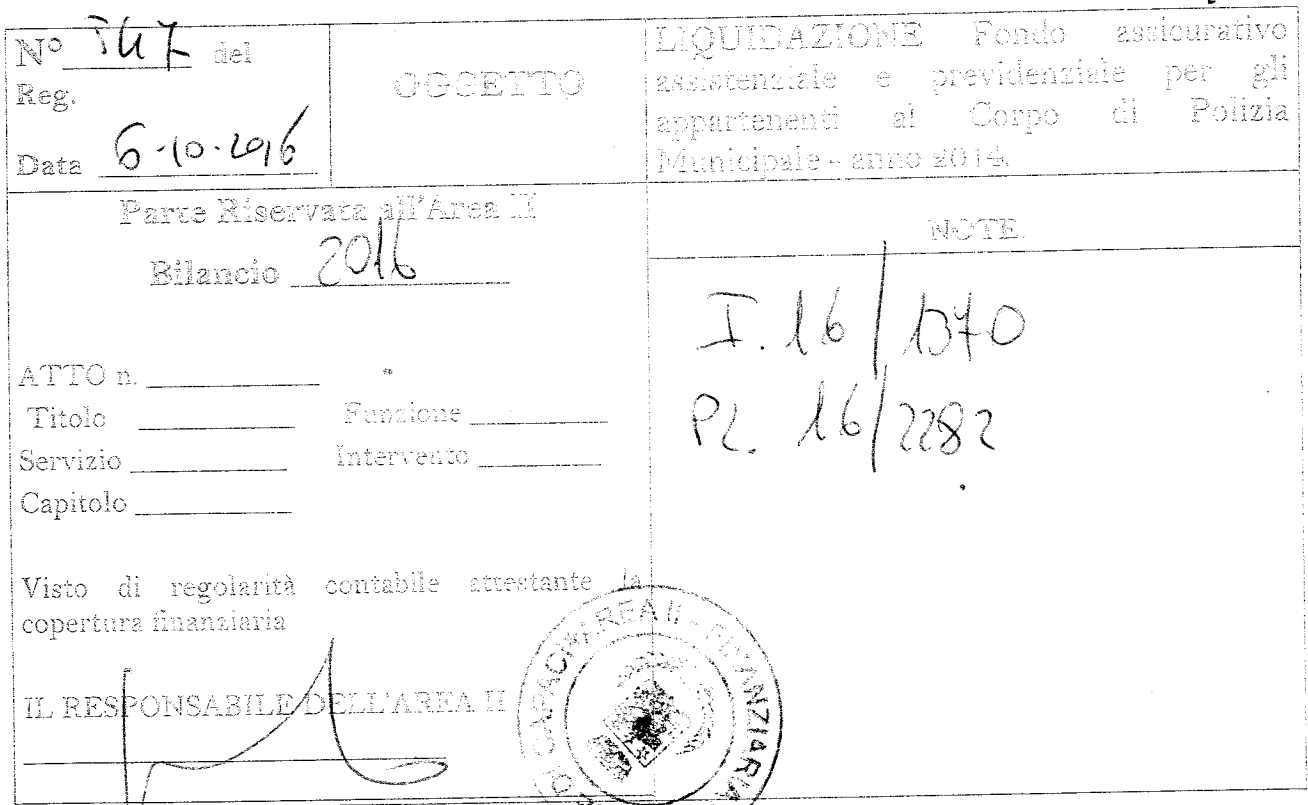 N° 547 del
Reg.
Data 6-10-2016
OGGETTO
LIQUIDAZIONE Fondo assicurativo
assistenziale e previdenziale per gli
appartenenti al Corpo di Polizia
Municipale - anno 2014.
Parte Riservata all'Area II
Bilancio 2016
ATTO n.
Titolo Funzione
Servizio Intervento
Capitolo
Visto di regolarità contabile attestante la
copertura finanziaria
IL RESPONSABILE DELL'AREA II
NOTE
I. 16/1370
PL. 16/2282
DI CAPACI AREA II - FINANZIARIA